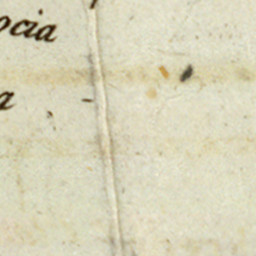 ocia
a